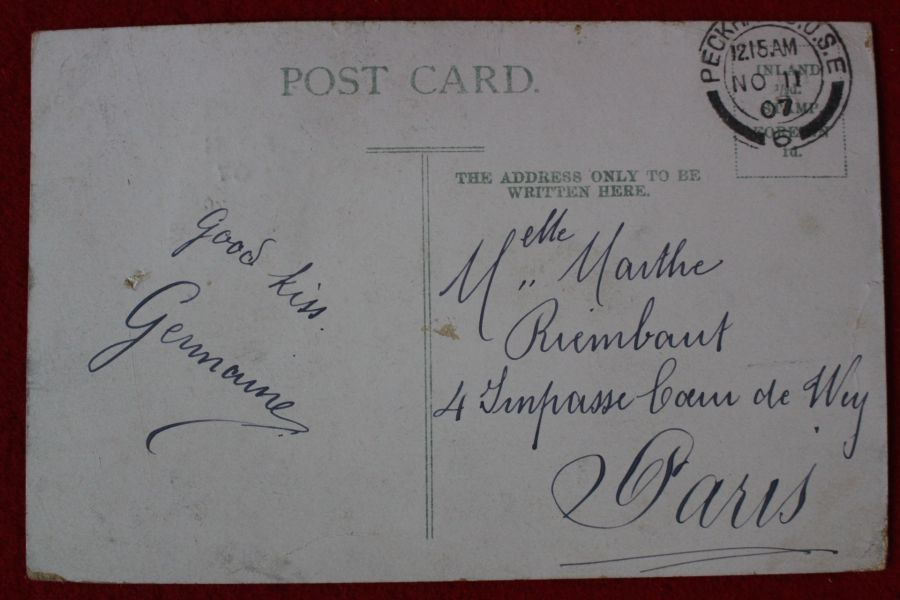 POST CARD.
PECKHAM S.O.S.E
12.15 AM
NO 11
07
6
INLAND
½d.
STAMP
FOREIGN
1d.
THE ADDRESS ONLY TO BE
WRITTEN HERE.
good kiss.
Germaine
Melle Marthe
Riembaut
4 Impasse Cœur de Vey
Paris